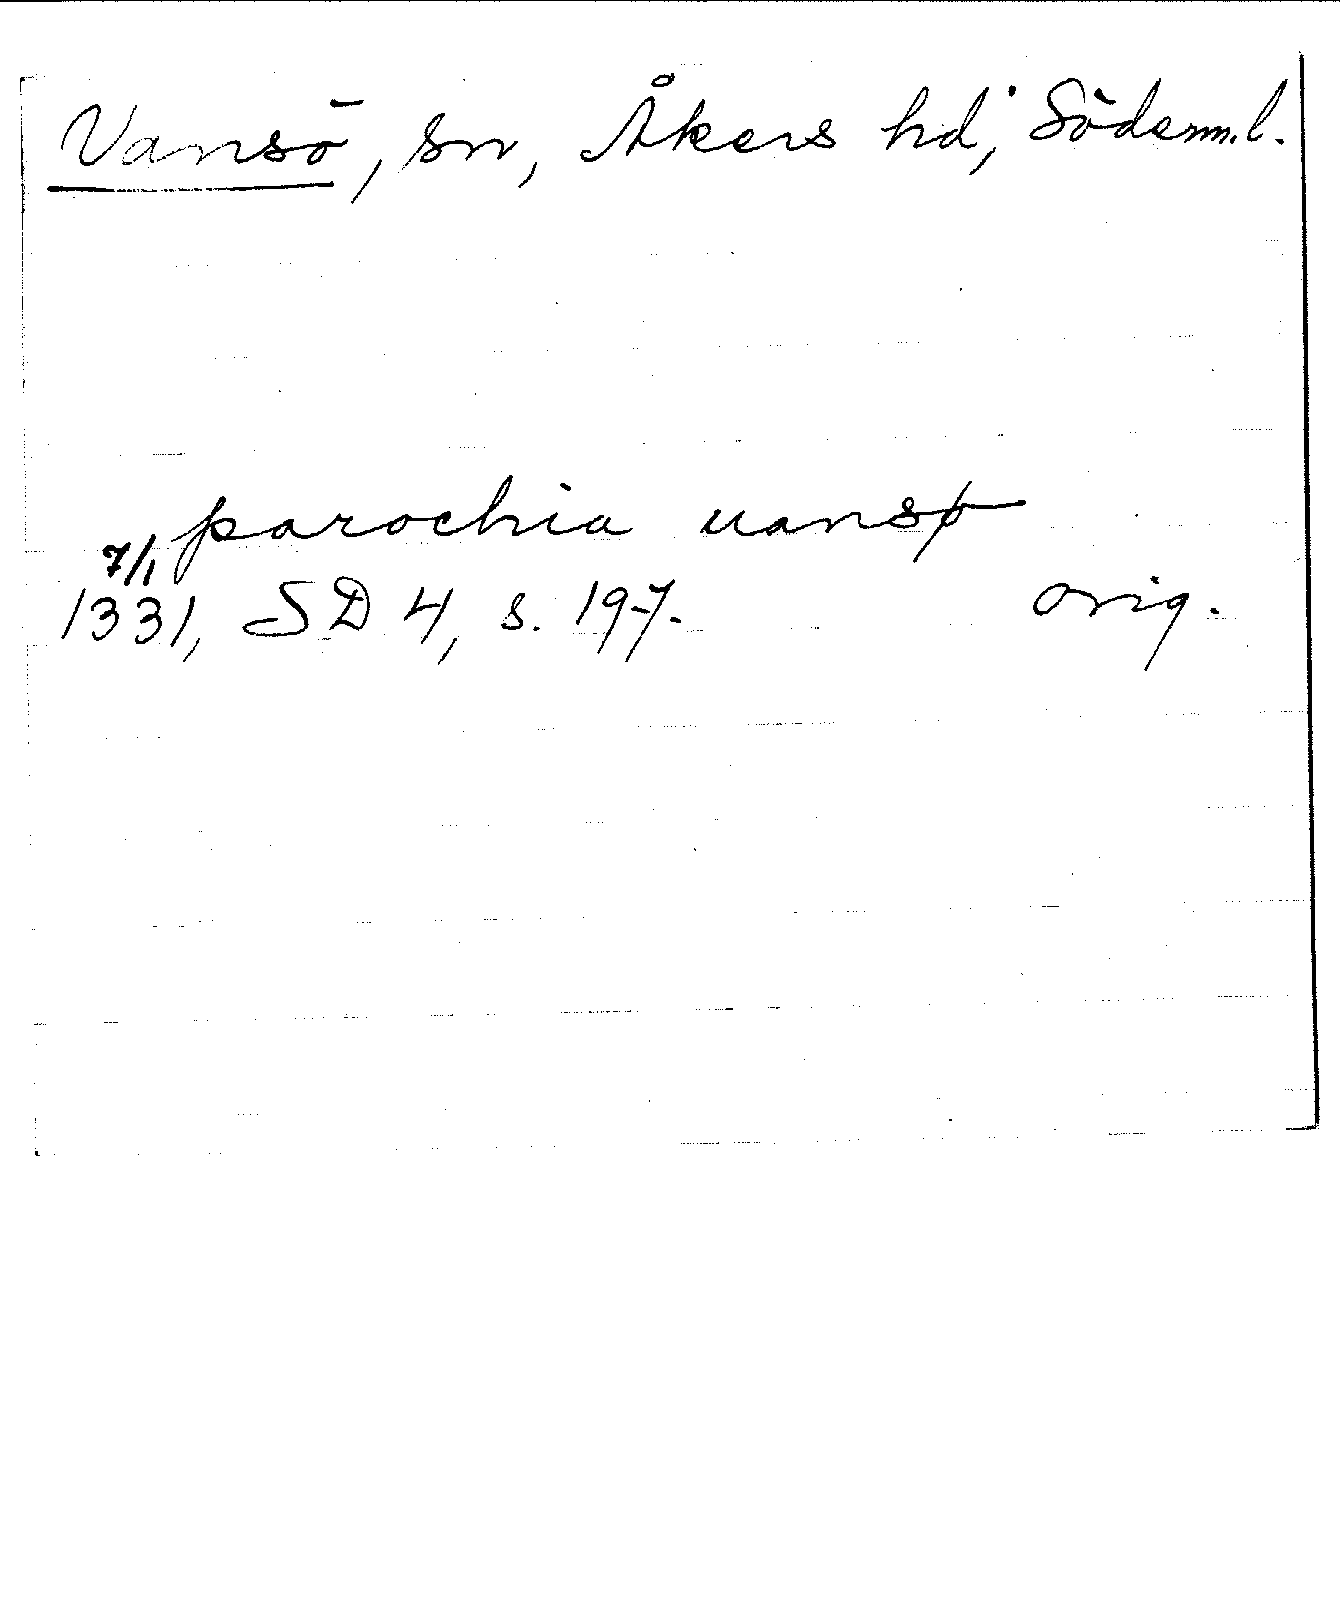 Vansö, sn, Åkers hd, Söderm.l.
parochia uansø
7/1
1331, SD 4, s. 197. orig.